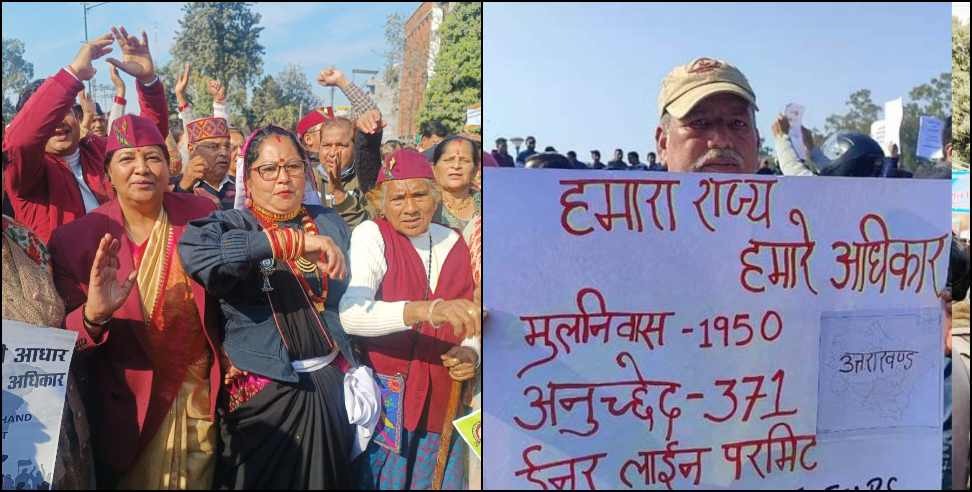 हमारा राज्य
हमारे अधिकार
मुलनिवास -1950
अनुच्छेद -371
ईनर लाईन परमिट
उत्तराखण्ड
आधार
अधिकार